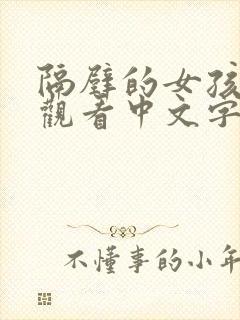 隔壁的女孩
觀看中文字
不懂事的小年